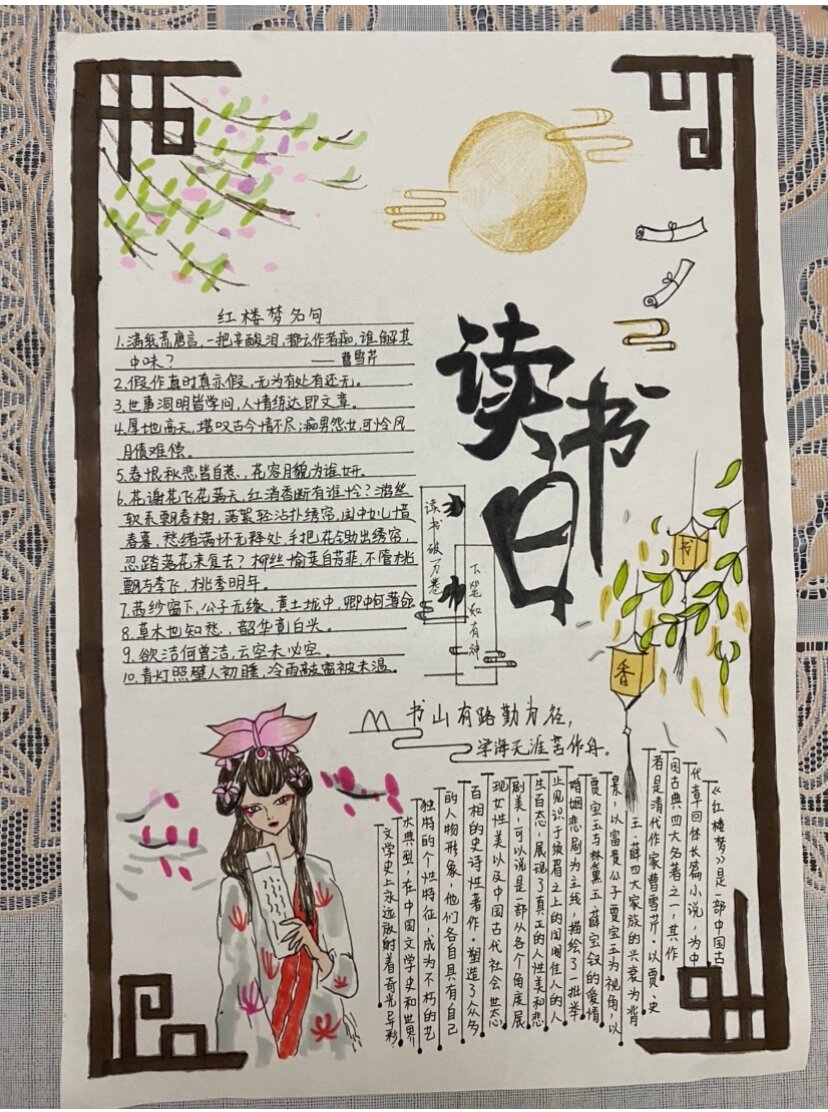 红楼梦名句
1.满纸荒唐言,一把辛酸泪,都云作者痴,谁解其
中味?——曹雪芹
2.假作真时真亦假,无为有处有还无。
3.世事洞明皆学问,人情练达即文章。
4.厚地高天,堪叹古今情不尽;痴男怨女,可怜风
月债难偿。
5.春恨秋悲皆自惹,花容月貌为谁妍。
6.花谢花飞花满天,红消香断有谁怜?游丝
软系飘春榭,落絮轻沾扑绣帘,闺中女儿惜
春暮,愁绪满怀无释处,手把花锄出绣帘,
忍踏落花来复去?柳丝榆荚自芳菲,不管桃
飘与李飞,桃李明年。
7.茜纱窗下,公子无缘,黄土垅中,卿何薄命
8.草木也知愁,韶华竟白头。
9.欲洁何曾洁,云空未必空。
10.青灯照壁人初睡,冷雨敲窗被未温。
读书日
读书破万卷
下笔如有神
书
香
书山有路勤为径,
学海无涯苦作舟。
《红楼梦》是一部中国古
代章回体长篇小说,为中
国古典四大名著之一,其作
者是清代作家曹雪芹。以贾、史
王、薛四大家族的兴衰为背
景,以富贵公子贾宝玉为视角,以
贾宝玉与林黛玉、薛宝钗的爱情
婚姻悲剧为主线,描绘了一批举
止见识于须眉之上的闺阁佳人的人
生百态,展现了真正的人性美和悲
剧美,可以说是一部从各个角度展
现女性美以及中国古代社会世态
百相的史诗性著作。塑造了众多
的人物形象,他们各自具有自己
独特的个性特征,成为不朽的艺
术典型,在中国文学史和世界
文学史上永远放射着奇光异彩